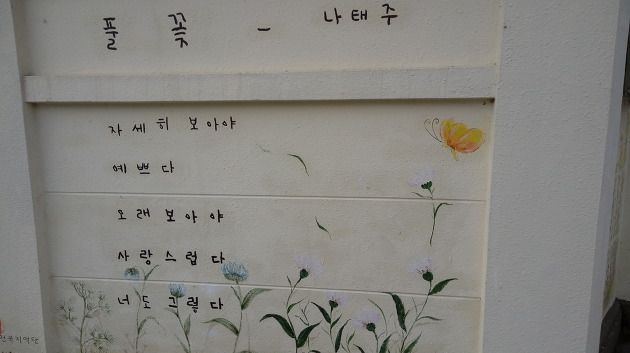 풀 꽃 - 나태주
자세히 보아야
예쁘다
오래보아야
사랑스럽다
너도 그렇다